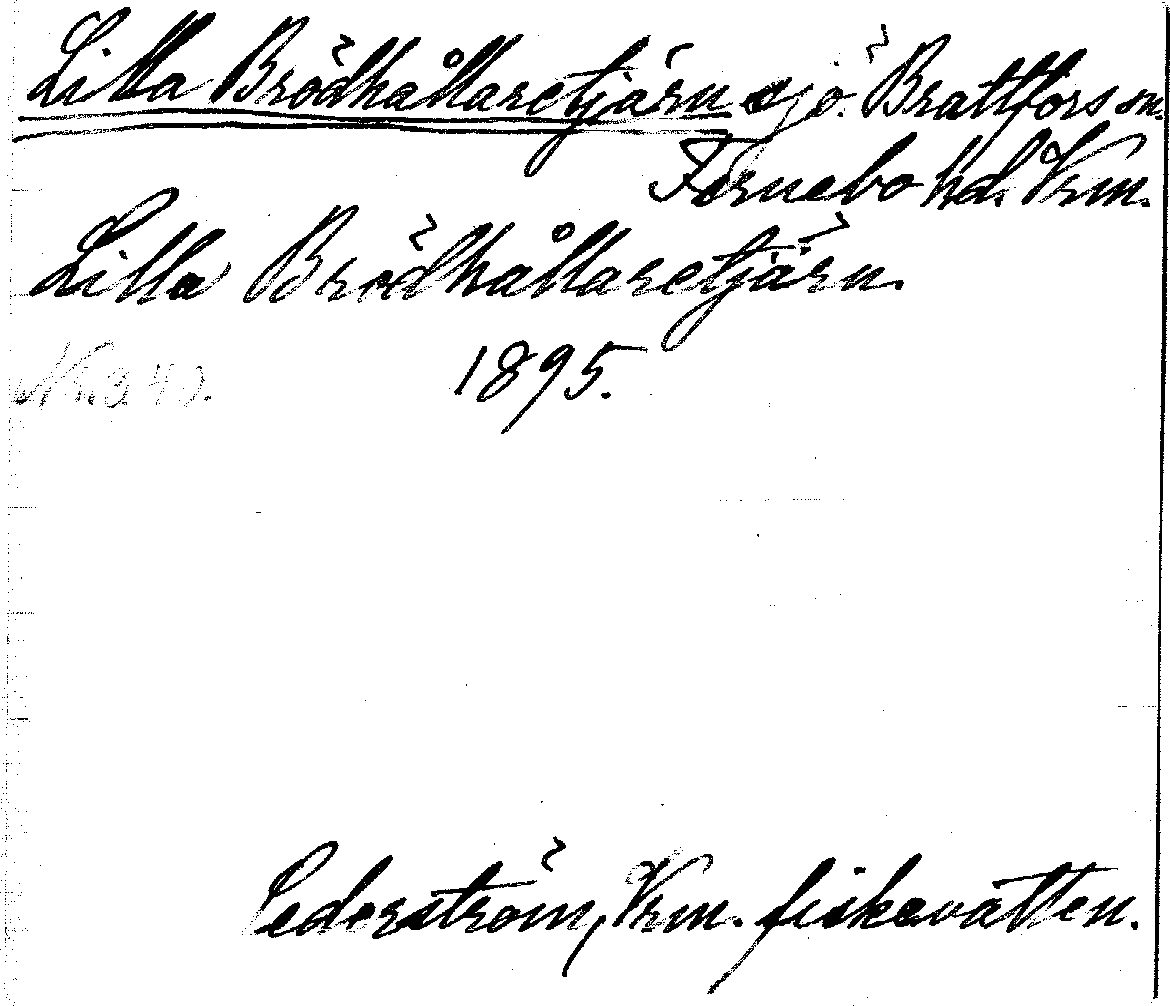 Lilla Brödhållaretjärn sjö. Brattfors sn.
Färnebo hd. Vrm.
Lilla Brödhållaretjärn.
1895.
Nr. 340.
Cederström, Vrm. fiskevatten.